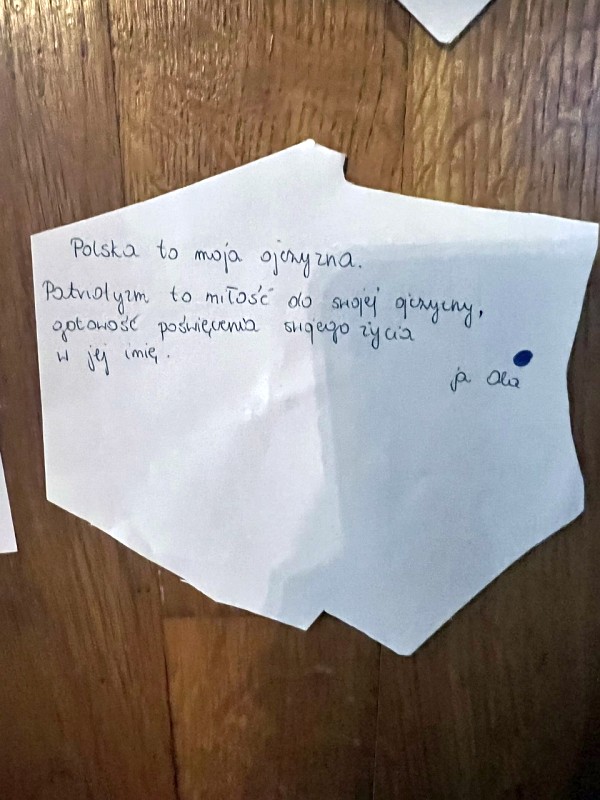 Polska to moja ojczyzna.
Patriotyzm to miłość do swojej ojczyzny,
gotowość poświęcenia swojego życia
w jej imię.
ja Ola